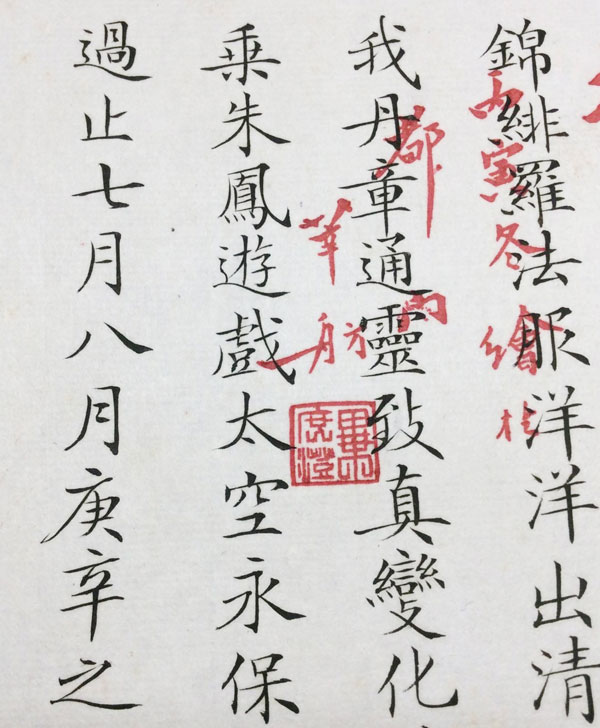 錦緋羅法服洋洋出清
我丹章通靈致真變化
乘朱鳳遊戲太空永保
過止七月八月庚辛之
丙寅冬繪於
都門
方舟